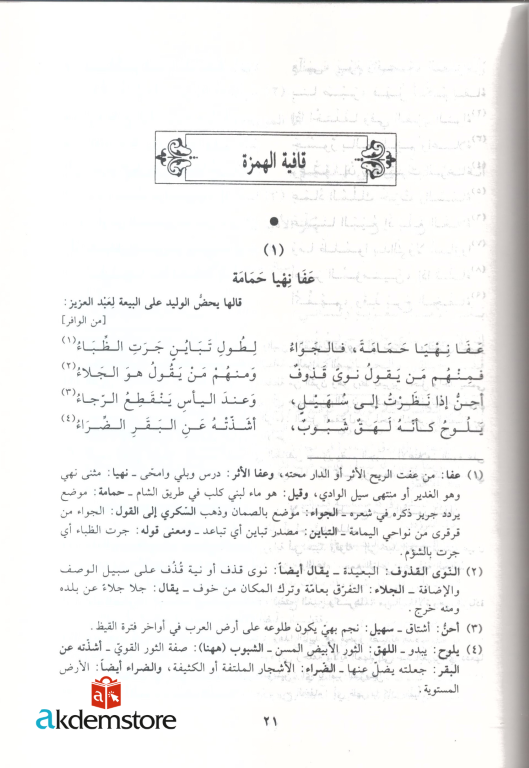 قافية الهمزة
(١)
عَفَا نِهْيا حَمَامَة
قالها يحضّ الوليد على البيعة لِعَبْد العزيز:
[من الوافر]
عَفَا نِهْيَا حَمَامَةَ، فالجَوَاءُ لِطُولِ تَبَايُنٍ جَرَتِ الظِّبَاءُ(١)
فَمِنْهُم مَن يَقولُ نوىً قَذوفٌ وَمنهُمْ مَنْ يَقُولُ هوَ الجَلاءُ(٢)
أحِنُّ إذا نَظَرْتُ إلى سُهَيْلٍ، وَعندَ اليأسِ يَنْقَطِعُ الرجَاءُ(٣)
يَلُوحُ كأنّهُ لَهَقٌ شَبُوبٌ، أشَذّتْهُ عَنِ البَقَرِ الضَّراءُ(٤)
(١) عفا: من عفت الريح الأثر أو الدار محته، وعفا الأثر: درس وبلي وامحى ـ نهيا: مثنى نهي
وهو الغدير أو منتهى سيل الوادي، وقيل: هو ماء لبني كلب في طريق الشام ـ حمامة: موضع
يردد جرير ذكره في شعره ـ الجواء: موضع بالصمان وذهب السكري إلى القول: الجواء من
قرقرى من نواحي اليمامة ـ التباين: مصدر تباين أي تباعد ـ ومعنى قوله: جرت الظباء أي
جرت بالشؤم.
(٢) النّوى القذوف: البعيدة ـ يقال أيضاً: نوى قذف أو نية قُذُف على سبيل الوصف
والإضافة ـ الجلاء: التفرّق بعامّة وترك المكان من خوف ـ يقال: جلا جلاءً عن بلده
ومنه خرج.
(٣) أحنُّ: أشتاق ـ سهيل: نجم بهيّ يكون طلوعه على أرض العرب في أواخر فترة القيظ.
(٤) يلوح: يبدو ـ اللهق: الثور الأبيض المسن ـ الشبوب (ههنا): صفة الثور القويّ ـ أشذّته عن
البقر: جعلته يضلّ عنها ـ الضّراء: الأشجار الملتفة أو الكثيفة، والضراء أيضاً: الأرض
المستوية.
٢١
akdemstore